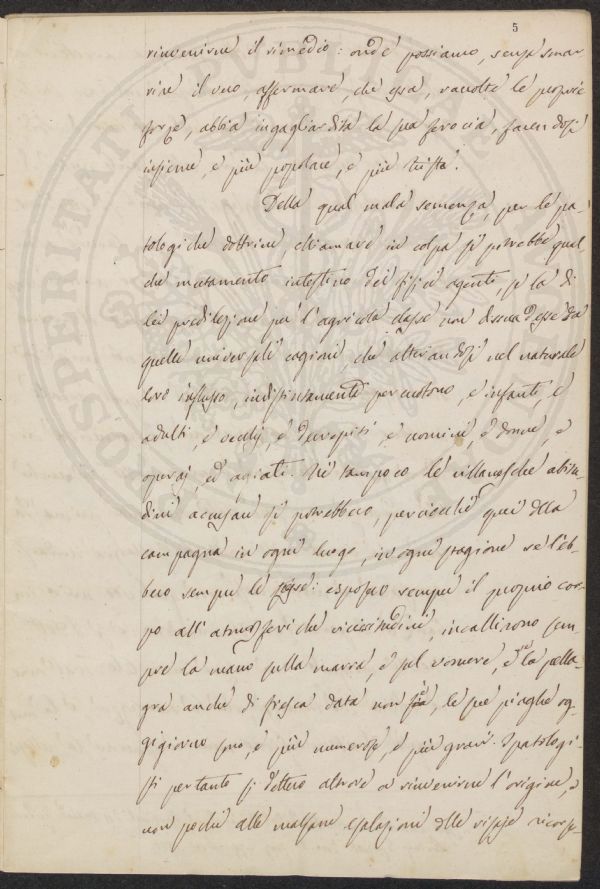 5
rinvenirne il rimedio: onde possiamo, senza smar-
rire il vero, affermare, che essa, raccolte le proprie
forze, abbia ingagliardita la sua ferocia, facendosi
insieme, e più popolare, e più trista.
Della qual mala semenza, per le pa-
tologiche dottrine, chiamare in colpa si potrebbe qual
che mutamento intestino dei fisici agenti, se la di
lei predilezione per l'agricola classe non dissuadesse da
quelle universali cagioni, che alterandosi nel naturale
loro influsso, indistintamente percuotono, e infanti, e
adulti, e vecchj, e decrepiti, e uomini, e donne, e
operaj, ed agiati. Nè tampoco le villanesche abitu-
dini accusare si potrebbero, perciocchè quei della
campagna in ogni luogo, in ogni stagione se l'eb-
bero sempre le stesse: esposero sempre il proprio cor-
po all'atmosferiche vicissitudini, incallirono sem-
pre la mano sulla marra, e sul vomere, e se la pella-
gra anche di fresca data non è, le sue piaghe og-
gigiorno sono, e più numerose, e più gravi. I patologi-
sti pertanto si dettero altrove a rinvenirne l'origine, e
non pochi alle malsane esalazioni delle risaje ricorse-